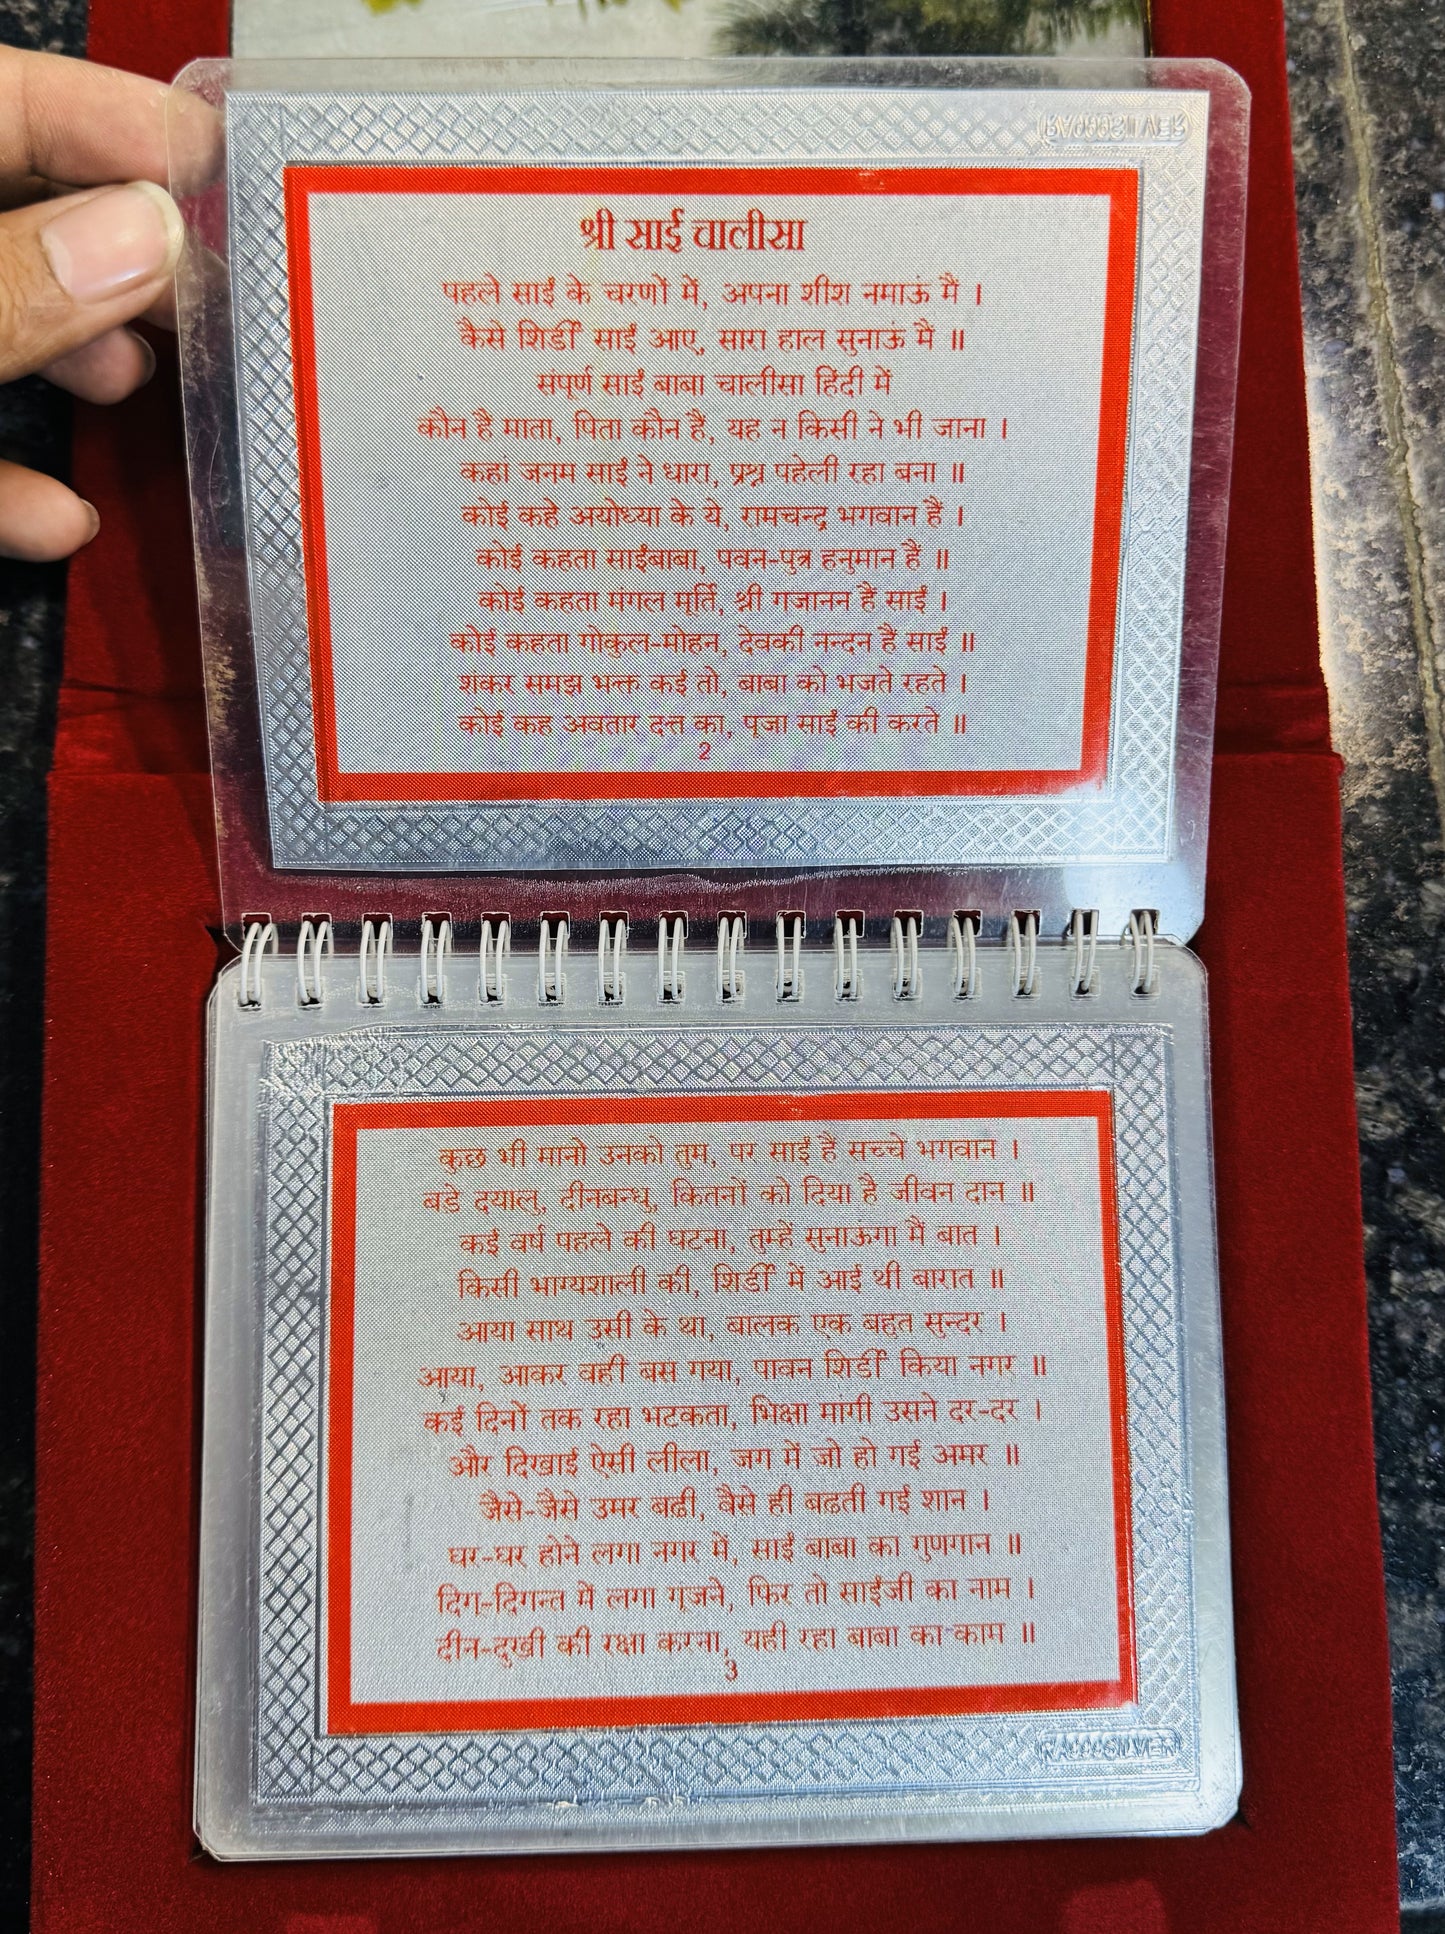 RA999SILVER
श्री साई चालीसा
पहले साईं के चरणों में, अपना शीश नमाऊं मैं ।
कैसे शिर्डी साईं आए, सारा हाल सुनाऊं मैं ॥
संपूर्ण साईं बाबा चालीसा हिंदी में
कौन है माता, पिता कौन है, यह न किसी ने भी जाना ।
कहां जनम साईं ने धारा, प्रश्न पहेली रहा बना ॥
कोई कहे अयोध्या के ये, रामचन्द्र भगवान हैं ।
कोई कहता साईंबाबा, पवन-पुत्र हनुमान हैं ॥
कोई कहता मंगल मूर्ति, श्री गजानन हैं साईं ।
कोई कहता गोकुल-मोहन, देवकी नन्दन हैं साईं ॥
शंकर समझ भक्त कई तो, बाबा को भजते रहते ।
कोई कह अवतार दत्त का, पूजा साईं की करते ॥
2
कुछ भी मानो उनको तुम, पर साईं हैं सच्चे भगवान ।
बडे दयालु, दीनबन्धु, कितनों को दिया है जीवन दान ॥
कई वर्ष पहले की घटना, तुम्हें सुनाऊंगा मैं बात ।
किसी भाग्यशाली की, शिर्डी में आई थी बारात ॥
आया साथ उसी के था, बालक एक बहुत सुन्दर ।
आया, आकर वहीं बस गया, पावन शिर्डी किया नगर ॥
कई दिनों तक रहा भटकता, भिक्षा मांगी उसने दर-दर ।
और दिखाई ऐसी लीला, जग में जो हो गई अमर ॥
जैसे-जैसे उमर बढी, वैसे ही बढती गई शान ।
घर-घर होने लगा नगर में, साईं बाबा का गुणगान ॥
दिग्-दिगन्त में लगा गूंजने, फिर तो साईंजी का नाम ।
दीन-दुखी की रक्षा करना, यही रहा बाबा का काम ॥
3
RA999SILVER